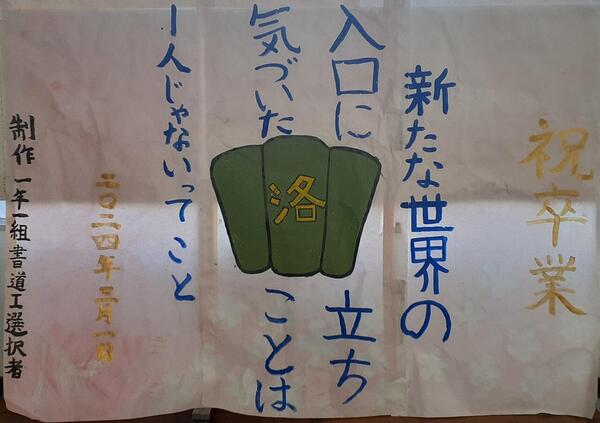 祝卒業
新たな世界の
入口に立ち
気づいたことは
1人じゃないってこと
洛
二〇二四年三月一日
制作 一年一組書道I選択者